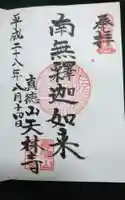 奉拝
南無釋迦如来
貞徳山天林寺
平成二十八年八月十四日